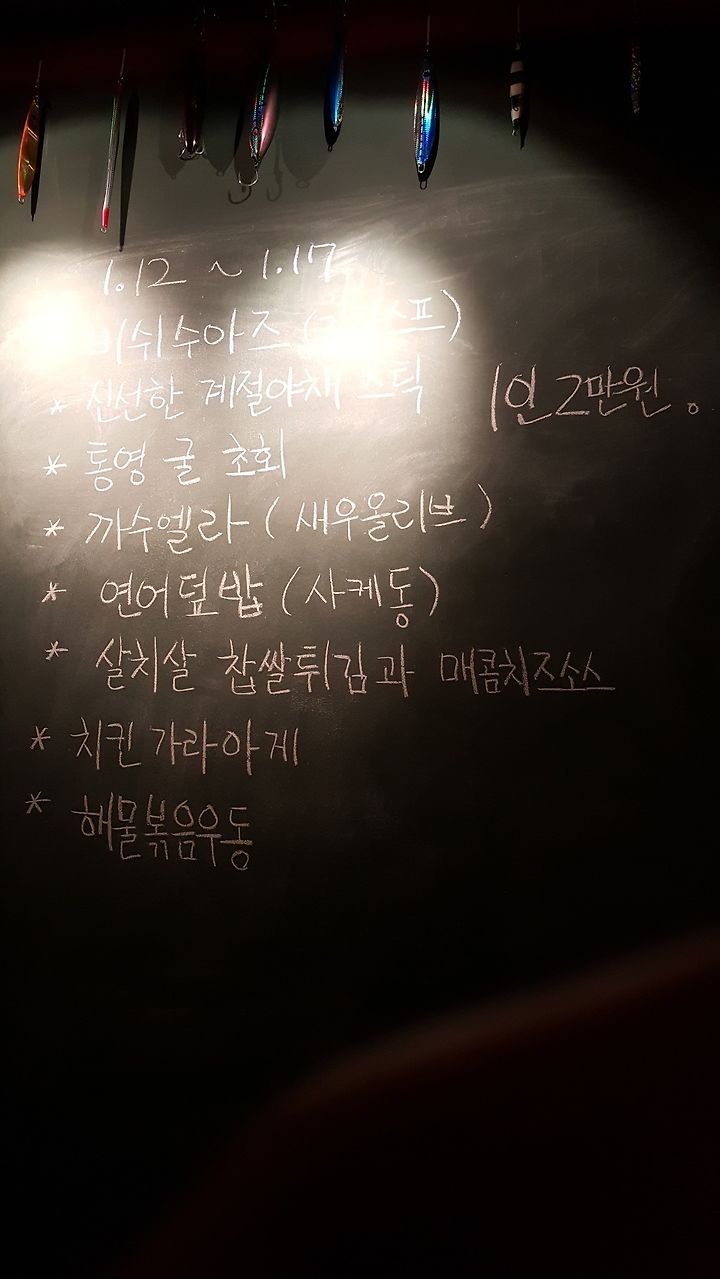 1.12 ~ 1.17
비쉬수아즈 ( 스프)
* 신선한 계절야채 스틱
1인 2만원。
* 통영 굴 초회
* 까수엘라 ( 새우올리브 )
* 연어덮밥 (사케동)
* 살치살 찹쌀튀김과 매콤치즈소스
* 치킨가라아게
* 해물볶음우동